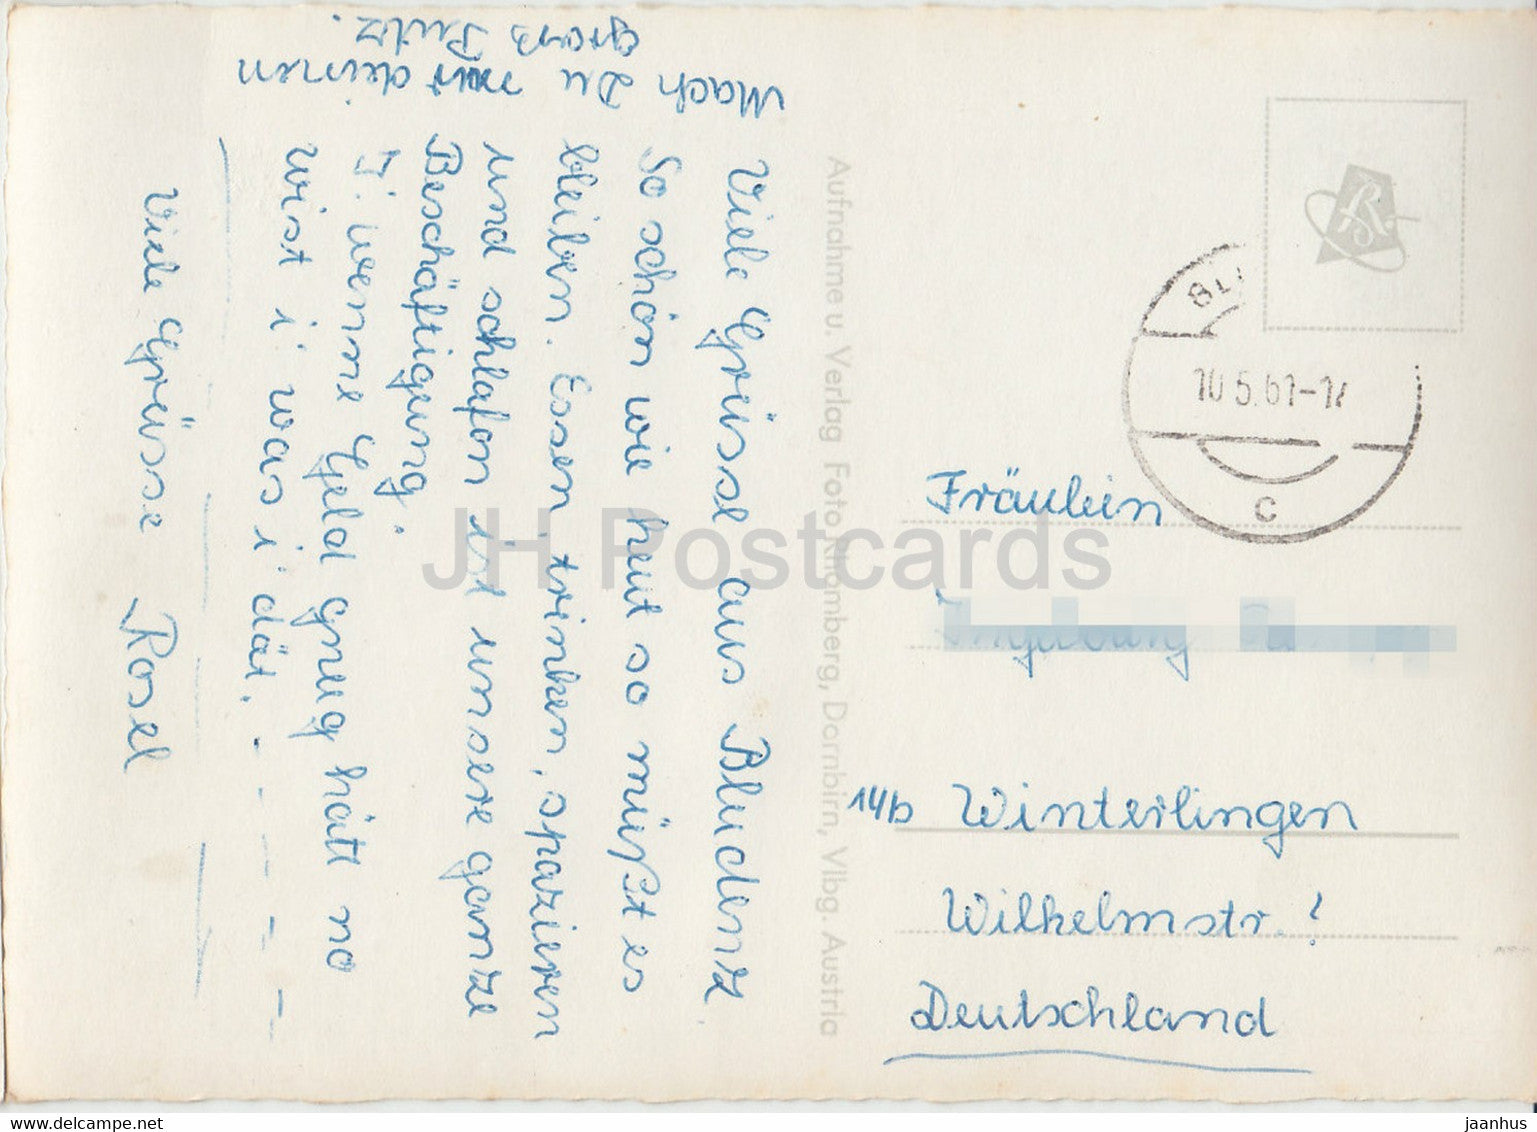 Mach Du mit deinen
groß Putz.
Viele Grüssl aus Bludenz.
So schön wie heut so müßt es
bleiben. Essen, trinken, spazieren
und schlafen ist unsere ganze
Beschäftigung.
J. wenne Geld gnug hätt no
wist i was i dät.
Viele Grüsse Rosel
Aufnahme u. Verlag Foto Rhomberg, Dornbirn, Vlbg. Austria
10.5.61-1
c
Fräulein
Ingeborg
14b Winterlingen
Wilhelmstr. ?
Deutschland
JH Postcards
www.delcampe.net
jaanhus